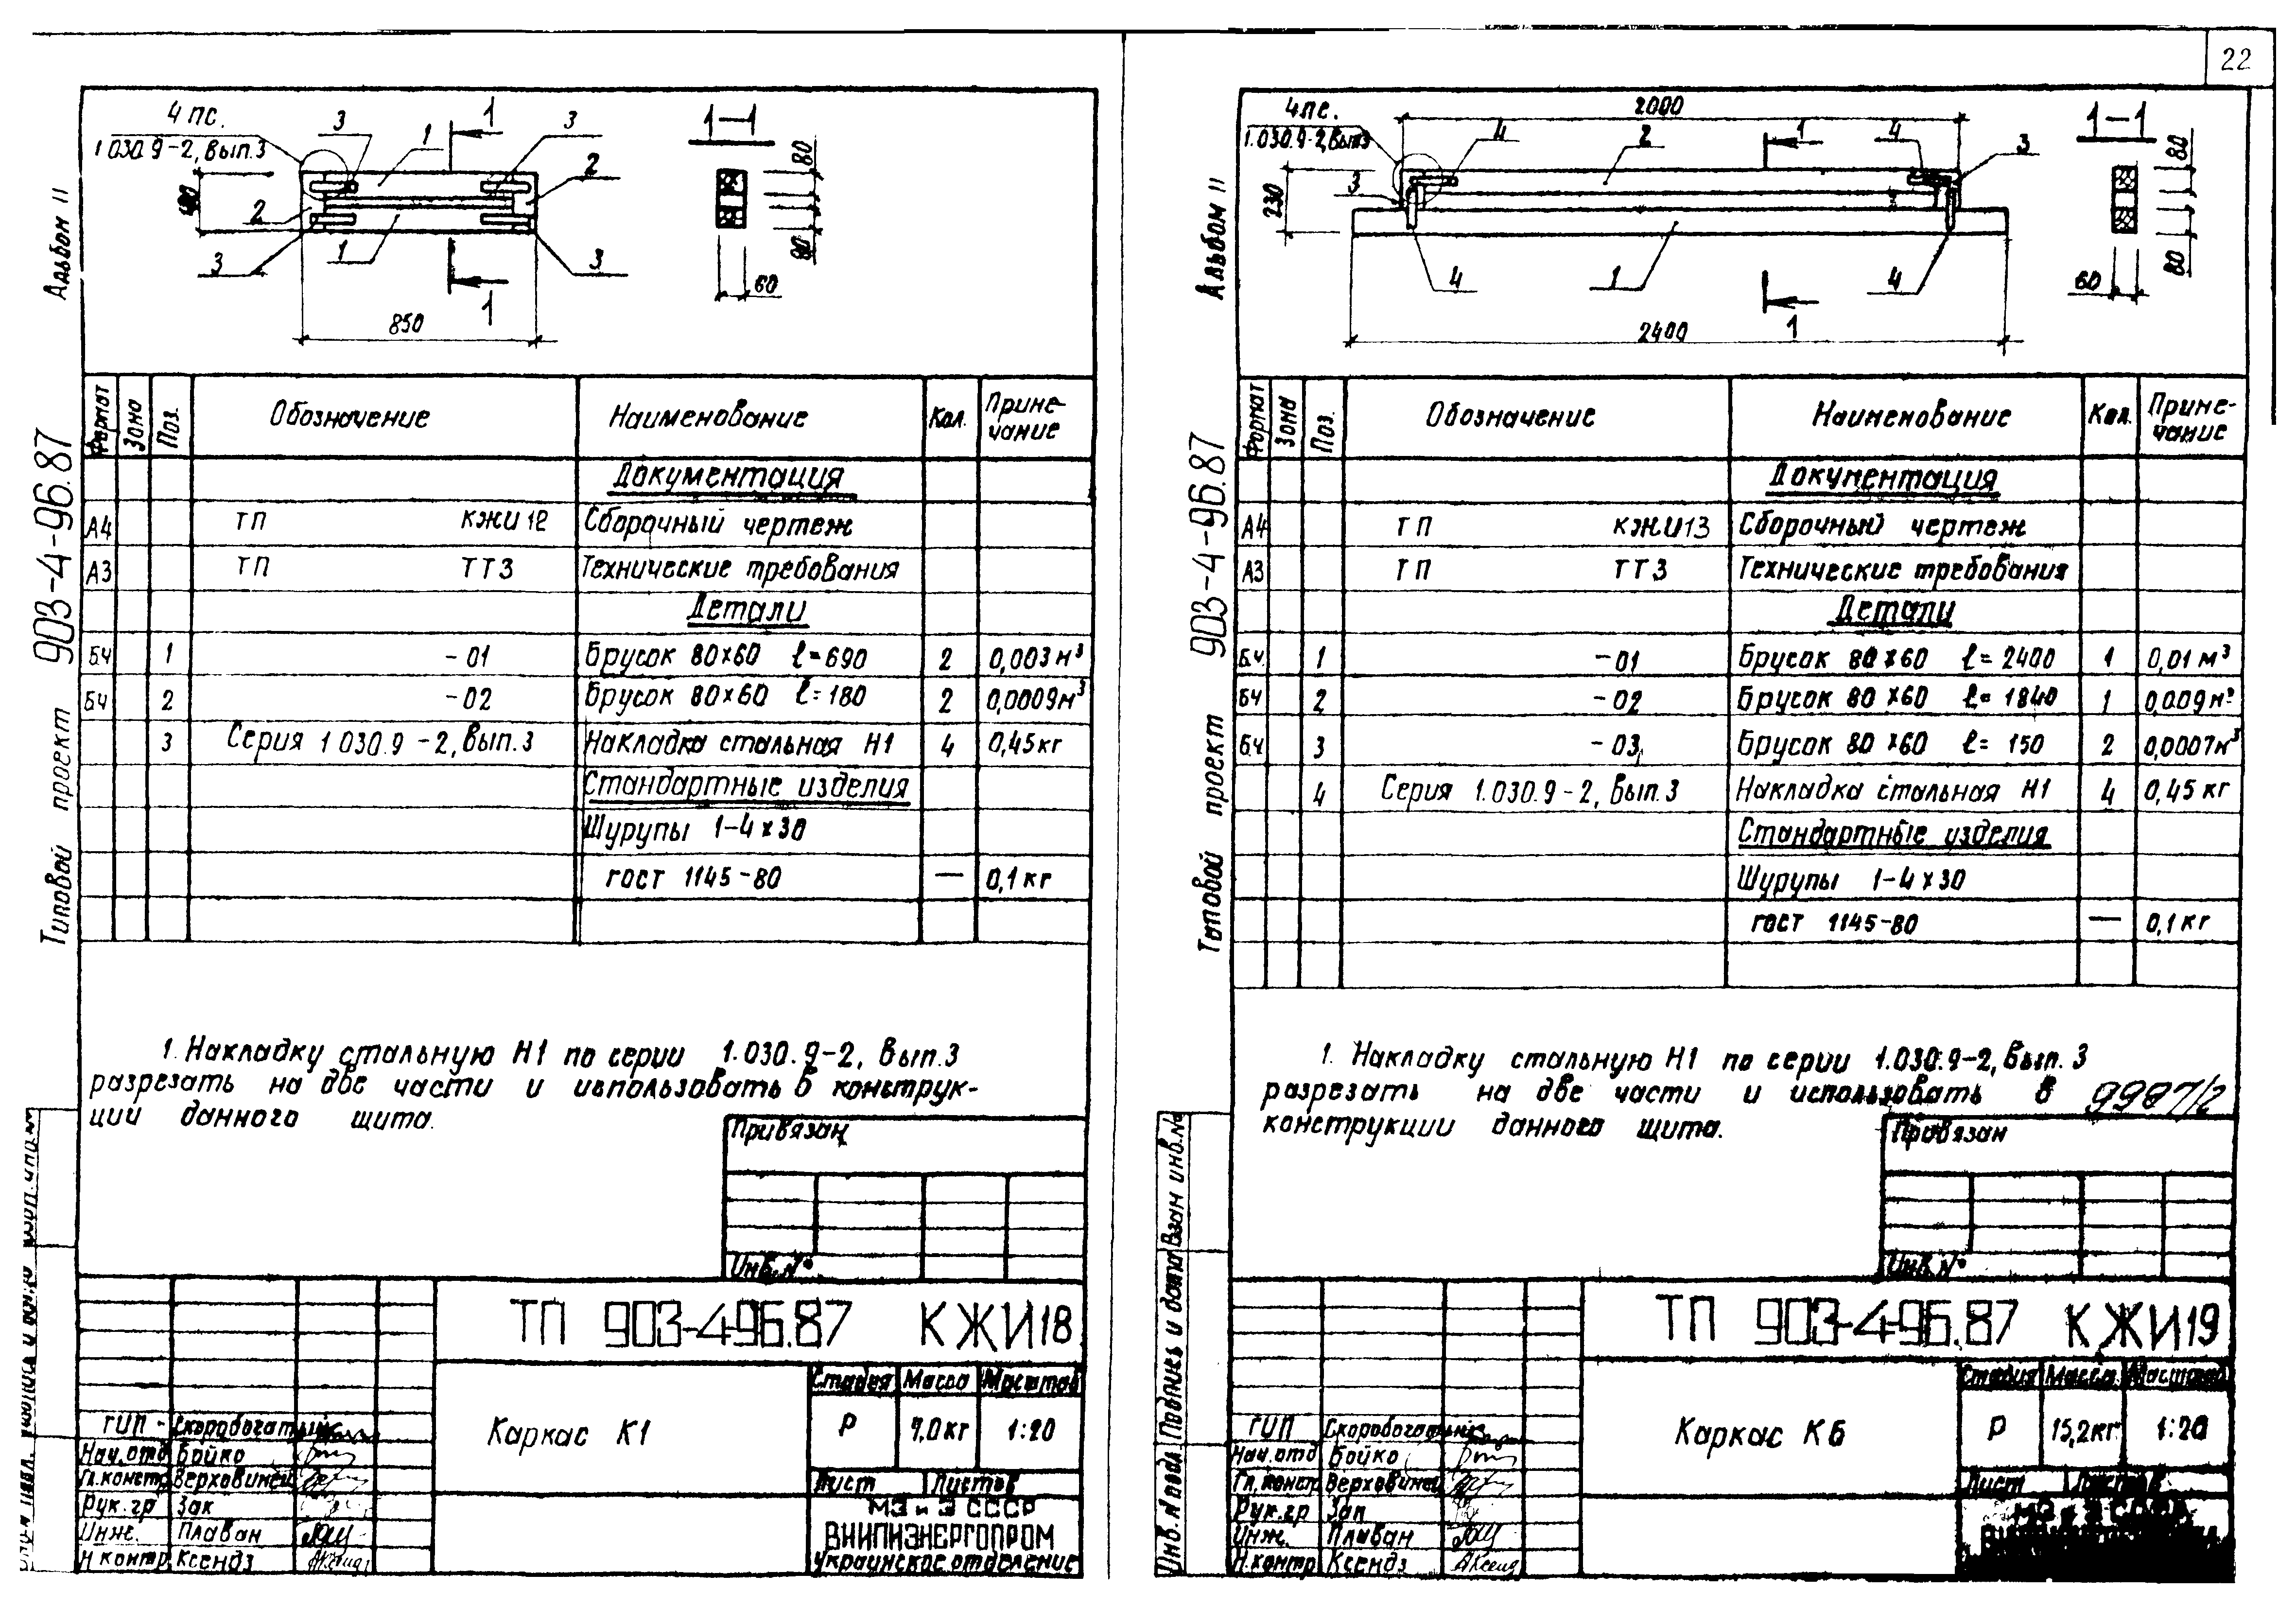 22
4 пс.
1.030.9-2, вып.3
3
1
1
3
2
2
3
1
3
1
850
1-1
80
80
60
Альбом II
Типовой проект 903-4-96.87
Формат
Зона
Поз.
Обозначение
Наименование
Кол.
Приме-
чание
Документация
А4 ТП КЖИ 12 Сборочный чертеж
А3 ТП ТТ3 Технические требования
Детали
БЧ 1 -01 Брусок 80х60 ℓ=690 2 0,003м³
БЧ 2 -02 Брусок 80х60 ℓ=180 2 0,0009м³
3 Серия 1.030.9-2, вып.3 Накладка стальная Н1 4 0,45кг
Стандартные изделия
Шурупы 1-4х30
гост 1145-80 — 0,1кг
1. Накладку стальную Н1 по серии 1.030.9-2, вып.3
разрезать на две части и использовать в конструк-
ции данного щита.
Привязан
Инв.№
ТП 903-4-96.87 КЖИ18
Каркас К1
Стадия Масса Масштаб
Р 7,0кг 1:20
Лист Листов
МЭ и Э СССР
ВНИПИЭНЕРГОПРОМ
Украинское отделение
ГИП Скоробогатый
Нач.отд Бойко
Гл.констр Верховинец
Рук.гр Зак
Инж. Плаван
Н.контр Ксендз
4пс.
1.030.9-2, вып3
2000
4
2
1
4
3
3
230
4
1
4
1
2400
1-1
80
80
60
Альбом II
Типовой проект 903-4-96.87
Формат
Зона
Поз.
Обозначение
Наименование
Кол.
Приме-
чание
Документация
А4 ТП КЖИ13 Сборочный чертеж
А3 ТП ТТ3 Технические требования
Детали
Б.Ч. 1 -01 Брусок 80х60 ℓ=2400 1 0,01м³
БЧ 2 -02 Брусок 80х60 ℓ=1840 1 0,009м³
Б.Ч 3 -03 Брусок 80х60 ℓ=150 2 0,0007м³
4 Серия 1.030.9-2, вып.3 Накладка стальная Н1 4 0,45кг
Стандартные изделия
Шурупы 1-4х30
гост 1145-80 — 0,1кг
1. Накладку стальную Н1 по серии 1.030.9-2, вып.3
разрезать на две части и использовать в
конструкции данного щита.
9987/2
Привязан
Инв.№
Инв.№ подл. Подпись и дата Взам инв.№
ТП 903-4-96.87 КЖИ19
Каркас К6
Стадия Масса Масштаб
Р 15,2кг 1:20
Лист Листов
МЭ и Э СССР
ГИП Скоробогатый
Нач.отд Бойко
Гл.констр Верховинец
Рук.гр Зак
Инж. Плаван
Н.контр Ксендз